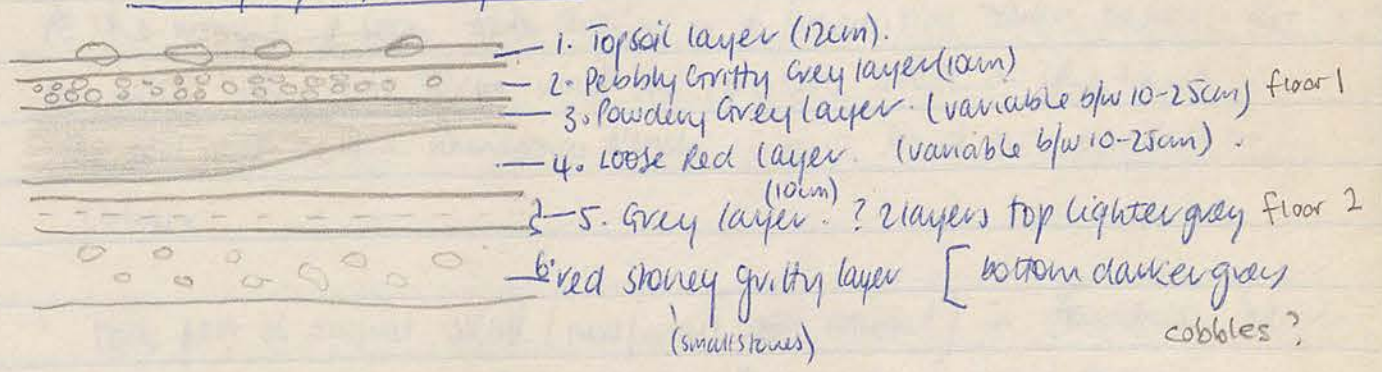 1. Topsoil layer (12cm).
2. Pebbly Gritty Grey layer (10cm)
3. Powdery Grey layer. (variable b/w 10-25cm) floor 1
4. Loose Red layer. (variable b/w 10-25cm).
(10cm)
5. Grey layer. ? 2 layers top lighter grey floor 2
6. red stoney gritty layer [bottom darker grey
(small stones)
cobbles?